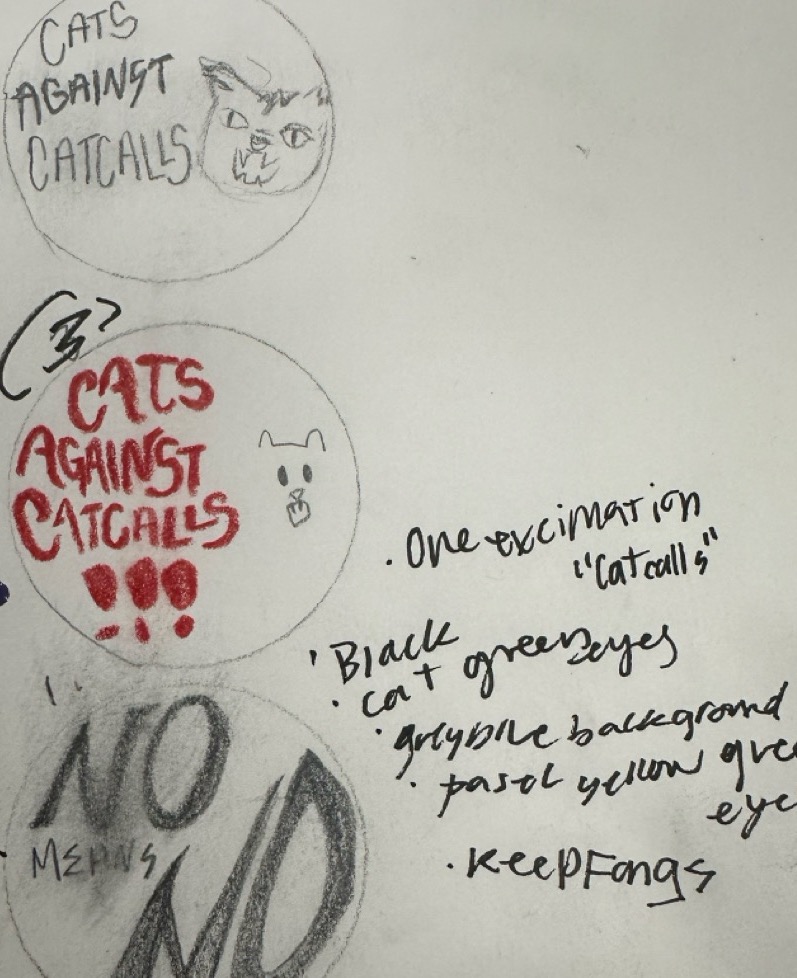 CATS
AGAINST
CATCALLS
CATS
AGAINST
CATCALLS
!!!
. One exclmation
"Catcalls"
' Black
. cat green eyes
. greyblue background
. pastol yellow gre
eye
. KeepFangs
NO
MEANS
NO